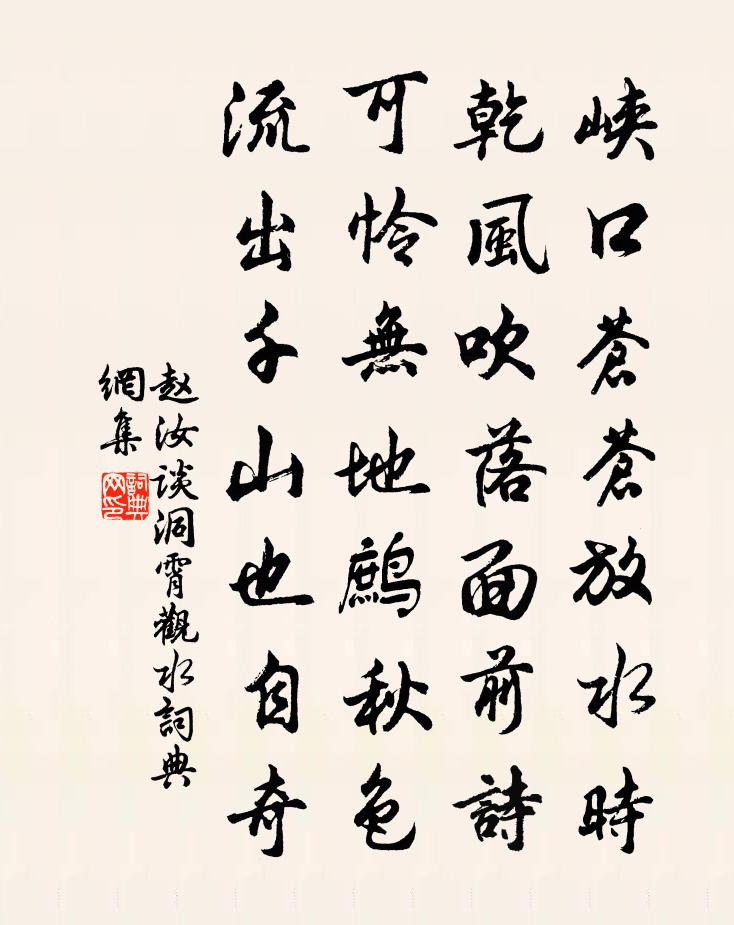 峽口蒼蒼放水時
乾風吹落面前詩
可憐無地鷓秋色
流出千山也自奇
赵汝谈洞霄觀水詞典
網集
詞典
网印